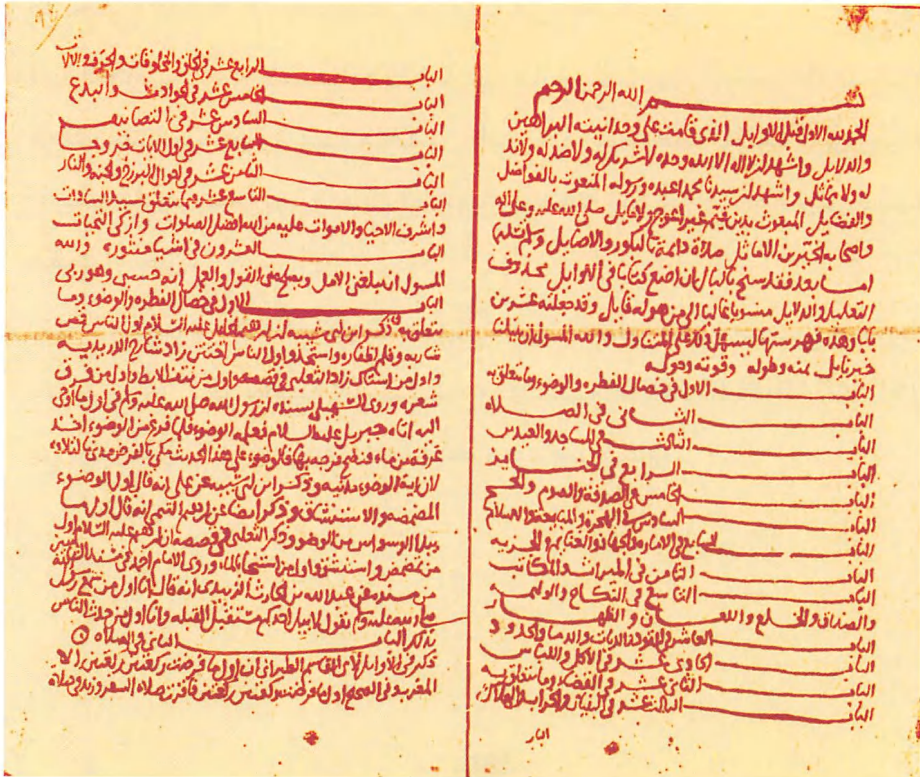 بسم الله الرحمن الرحيم
الحمد لله الاول قبل الاوايل الذي قامت على وحدانيته البراهين
والدلايل واشهد ان لا اله الا الله وحده لا شريك له ولا ضد له ولا ند
له ولا مماثل واشهد ان سيدنا محمدا عبده ورسوله المنعوت بالفواضل
والفضايل المبعوث بدين قيم غير اعوج ولا مايل صلى الله عليه وعلى اله
واصحابه الخيرين الاماثل صلاة دايمة بالبكور والاصايل وسلم تسليما
اما بعد فقد سنح بالبال ان اضع كتابا في الاوايل محذوف
التعاليل والدلايل منسوبا غالبا الى من هو له قايل وقد جعلته عشرين
بابا وهذه فهرستها ليسهل ذلك على المتناول والله المسول ان ينيلنا
خير نايل بمنه وطوله وقوته وحوله
الباب الاول في خصال الفطره والوضوء وما يتعلق به
الباب الثاني في الصلاه
الباب الثالث في المساجد والعيدين
الباب الرابع في الجنايز
الباب الخامس في الصدقة والصوم والحج
الباب السادس في الهجرة والمتابعة والاسلام
الباب السابع في الاماره والجهاد والغنايم والجزيه
الباب الثامن في الميراث والمكاتب
الباب التاسع في النكاح والوليمه
والصداق والخلع واللعان والظهار
الباب العاشر في القود والديات والدما والحدود
الباب الحادي عشر في الاكل واللباس
الباب الثاني عشر في القضاء وما يتعلق به
الباب الثالث عشر في البنيان والخراب والهلاك
الباب
الباب الرابع عشر في الخلق والمخلوقات والحرف والالات
الباب الخامس عشر في الحوادث والبدع
الباب السادس عشر في التصانيف
الباب السابع عشر في اول الايات خروجا
الباب الثامن عشر في احوال البرزخ والجنه والنار
الباب التاسع عشر فيما يتعلق بسيد السادات
واشرف الاحيا والاموات عليه من الله افضل الصلوات وازكى التحيات
الباب العشرون في اشيا منثوره والله
المسول ان يبلغني الامل ويعينني على القول والعمل انه حسبي وهو ربي
الباب الاول في خصال الفطره والوضوء وما
يتعلق به ذكر ابن ابي شيبه ان ابراهيم الخليل عليه السلام اول الناس قص
شاربه وقلم اظفاره واستحد واول الناس اختتن زاد شارح الدريديه
واول من استاك زاد الثعلبي في قصصه واول من نتف الابط واول من فرق
شعره وروى السهيلي بسنده ان رسول الله صلى الله عليه وسلم في اول ما اوحي
اليه اتاه جبريل عليه السلام فعلمه الوضوء فلما فرغ من الوضوء اخذ
غرفة من ماء فنضح فرجه بها فالوضوء على هذا الحديث مكي بالفرض مدني بالتلاوه
لان اية الوضوء مدنيه وذكر ابن ابي شيبه عن علي انه قال اول الوضوء
المضمضه والاستنشاق وذكر ايضا عن ابراهيم التيمي انه قال اول ما
يبدا الوسواس من الوضو وذكر الثعلبي في قصصه ان ابراهيم عليه السلام اول
من تمضمض واستنشق واول من استنجا بالماء وروى الامام احمد في مسنده
عن عبد الله بن الحارث الزبيدي انه قال انا اول من سمع رسول
الله صلى الله عليه وسلم يقول لا يبل احدكم مستقبل القبله وانا اول من حدث الناس
بذلك الباب الثاني في الصلاه
ذكر في الاوايل لابي القاسم الطبراني ان اول ما فرضت ركعتين ركعتين الا
المغرب وفي الصحيح اول ما فرضت ركعتين ركعتين فاقرت صلاة السفر وزيد في صلاه